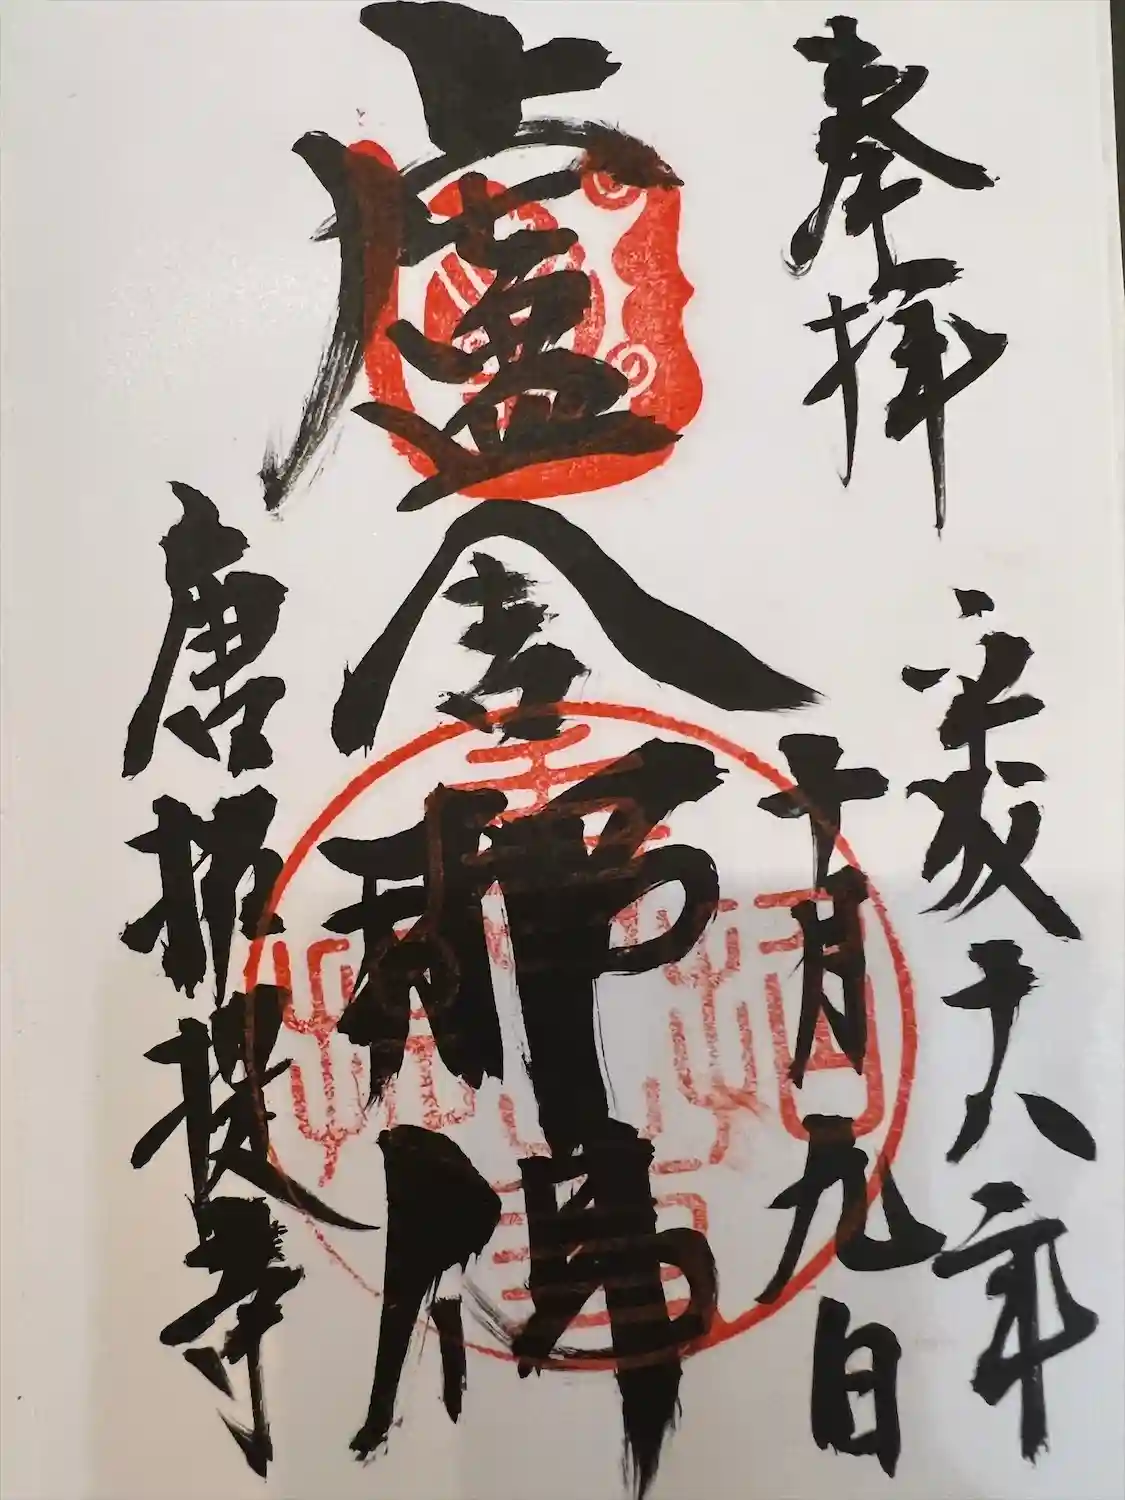 奉拝
平成二十八年
十月九日
盧舎那佛
唐招提寺